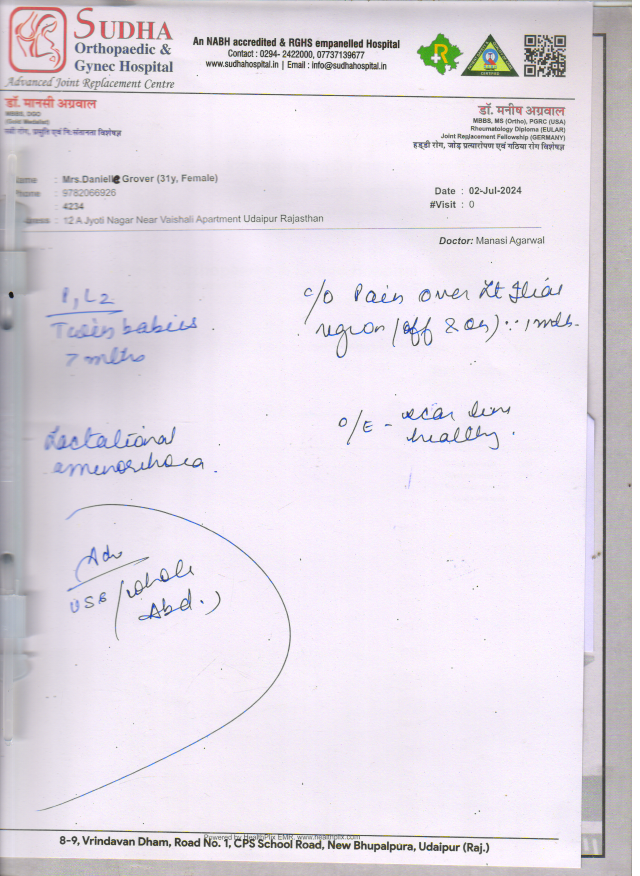 SUDHA
Orthopaedic &
Gynec Hospital
Advanced Joint Replacement Centre
An NABH accredited & RGHS empanelled Hospital
Contact : 0294- 2422000, 07737139677
www.sudhahospital.in | Email : info@sudhahospital.in
R
डॉ. मानसी अग्रवाल
MBBS, DGO
(Gold Medalist)
स्त्री रोग, प्रसूति एवं नि:संतानता विशेषज्ञ
डॉ. मनीष अग्रवाल
MBBS, MS (Ortho), PGRC (USA)
Rheumatology Diploma (EULAR)
Joint Replacement Fellowship (GERMANY)
हड्डी रोग, जोड़ प्रत्यारोपण एवं गठिया रोग विशेषज्ञ
Name : Mrs.Danielle Grover (31y, Female)
Phone : 9782066926
: 4234
Address : 12 A Jyoti Nagar Near Vaishali Apartment Udaipur Rajasthan
Date : 02-Jul-2024
#Visit : 0
Doctor: Manasi Agarwal
P1L2
Twin babies
7 mths
c/o Pain over Lt Iliac
region (off & on) 1 mth.
Lactational
amenorrhoea.
O/E - scar line
healthy.
Adv
USG (whole
Abd.)
Powered by HealthPlix EMR. www.healthplix.com
8-9, Vrindavan Dham, Road No. 1, CPS School Road, New Bhupalpura, Udaipur (Raj.)